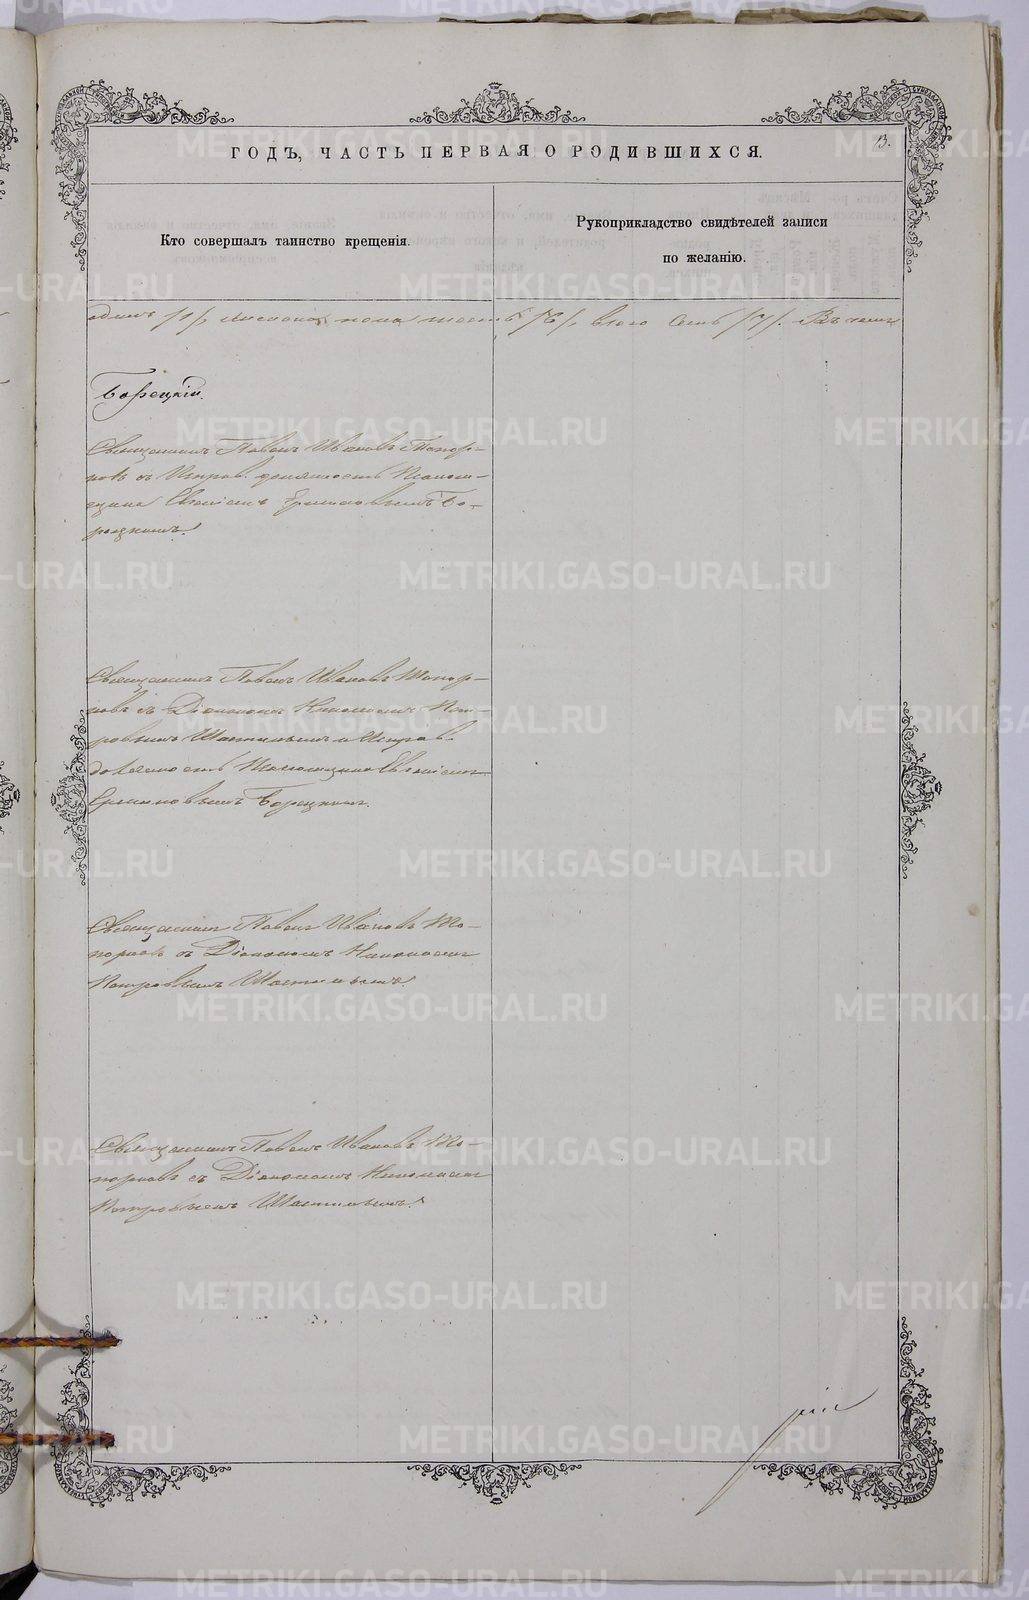 13.
ГОДЪ, ЧАСТЬ ПЕРВАЯ О РОДИВШИХСЯ.
Кто совершалъ таинство крещенія.
Рукоприкладство свидѣтелей записи
по желанію.
одинъ /1/ женска пола шесть /6/ всего семь /7/. Въ томъ
Борецкій.
Священникъ Павелъ Ивановъ Топор-
ковъ съ Исправ. должность Псаломщ-
щика Евгеніемъ Ермиловымъ Бо-
рецкимъ.
Священникъ Павелъ Ивановъ Топор-
ковъ съ Діакономъ Николаемъ Пет-
ровымъ Шастинымъ и Исправ.
должность Псаломщика Евгеніемъ
Ермиловымъ Борецкимъ.
Священникъ Павелъ Ивановъ То-
порковъ съ Діакономъ Николаемъ
Петровымъ Шастинымъ.
Священникъ Павелъ Ивановъ То-
порковъ съ Діакономъ Николаемъ
Петровымъ Шастинымъ.
METRIKI.GASO-URAL.RU